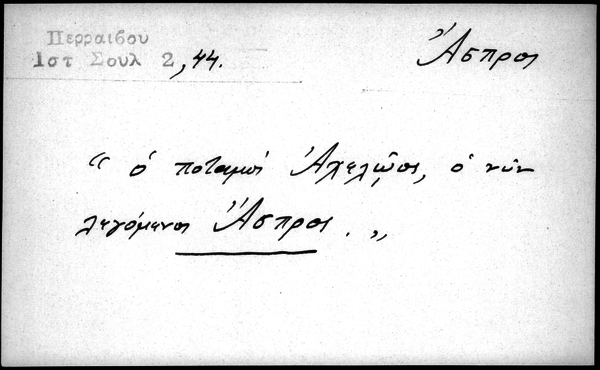 Περραιβου
Ιστ Σουλ 2, 44.
Ἄσπρος
“ ὁ ποταμὸς Ἀχελῷος, ὁ νῦν
λεγόμενος Ἄσπρος. „